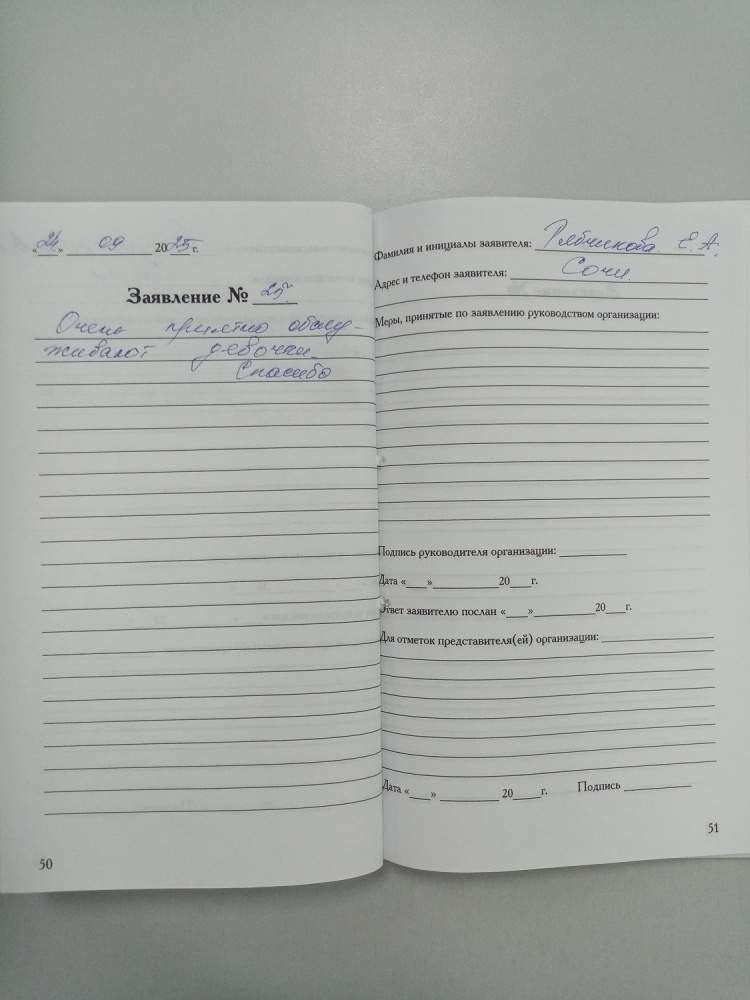 «24» 09 2025 г.
Заявление № 25
Очень приятно обслу-
живают девочки.
Спасибо
50
Фамилия и инициалы заявителя: Рябчикова Е.А.
Адрес и телефон заявителя: Сочи.
Меры, принятые по заявлению руководством организации:
Подпись руководителя организации:
Дата «___» 20___г.
Ответ заявителю послан «___» 20___г.
Для отметок представителя(ей) организации:
Дата «___» 20___г. Подпись
51